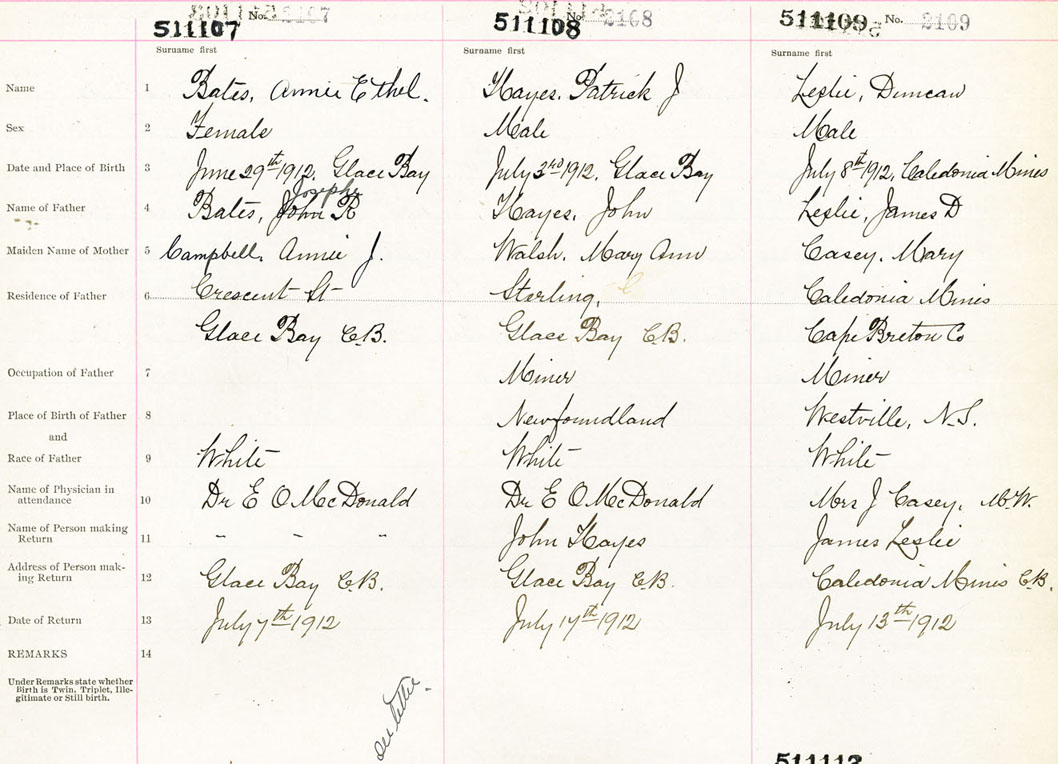 No. 2107 No. 2108 No. 2109
511107 511108 511109
Surname first Surname first Surname first
Name 1 Bates, Annie Ethel. Hayes, Patrick J Leslie, Duncan
Sex 2 Female Male Male
Date and Place of Birth 3 June 29th 1912, Glace Bay July 3rd 1912, Glace Bay July 8th 1912, Caledonia Mines
Joseph
Name of Father 4 Bates, John R Hayes, John Leslie, James D
Maiden Name of Mother 5 Campbell, Annie J. Walsh, Mary Ann Casey, Mary
Residence of Father 6 Crescent St Sterling, Caledonia Mines
Glace Bay C.B. Glace Bay C.B. Cape Breton Co
Occupation of Father 7 Miner Miner
Place of Birth of Father 8 Newfoundland Westville, N.S.
and
Race of Father 9 White White White
Name of Physician in
attendance 10 Dr E O McDonald Dr E O McDonald Mrs J Casey, M.W.
Name of Person making
Return 11 " " " John Hayes James Leslie
Address of Person mak-
ing Return 12 Glace Bay C.B. Glace Bay C.B. Caledonia Mines C.B.
Date of Return 13 July 7th 1912 July 17th 1912 July 13th 1912
REMARKS 14
Under Remarks state whether
Birth is Twin, Triplet, Ille-
gitimate or Still birth.
see letter.